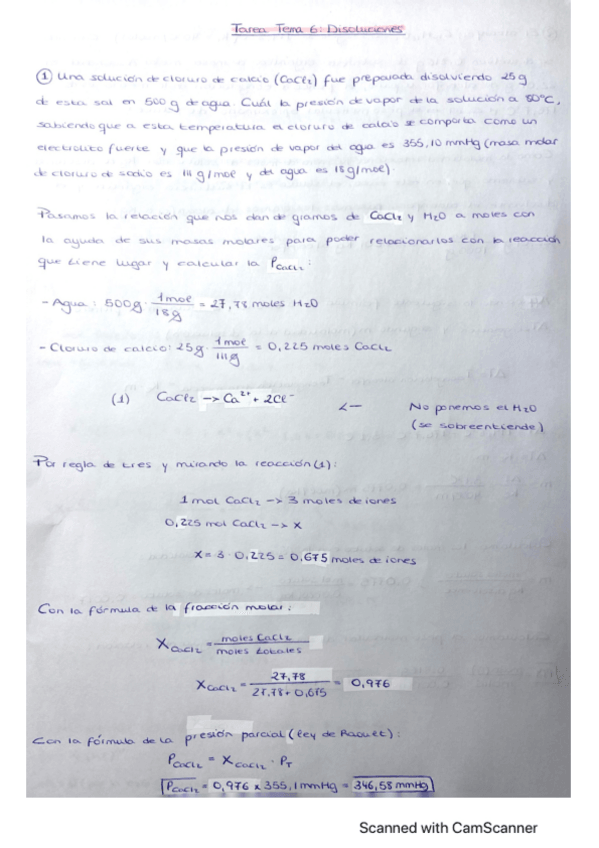 Tarea Tema 6: Disoluciones
① Una solución de cloruro de calcio (CaCl₂) fue preparada disolviendo 25g
de esta sal en 500g de agua. Cuál la presión de vapor de la solución a 80°C,
sabiendo que a esta temperatura el cloruro de calcio se comporta como un
electrolito fuerte y que la presión de vapor del agua es 355,10 mmHg (masa molar
de cloruro de sodio es 111 g/mol y del agua es 18g/mol).
Pasamos la relación que nos dan de gramos de CaCl₂ y H₂O a moles con
la ayuda de sus masas molares para poder relacionarlos con la reacción
que tiene lugar y calcular la P CaCl₂:
- Agua: 500g · 1mol / 18g = 27,78 moles H₂O
- Cloruro de calcio: 25g · 1mol / 111g = 0,225 moles CaCl₂
(1) CaCl₂ -> Ca²⁺ + 2Cl⁻ <- No ponemos el H₂O
(se sobreentiende)
Por regla de tres y mirando la reacción (1):
1 mol CaCl₂ -> 3 moles de iones
0,225 mol CaCl₂ -> X
X = 3 · 0,225 = 0,675 moles de iones
Con la fórmula de la fracción molar:
X CaCl₂ = moles CaCl₂ / moles totales
X CaCl₂ = 27,78 / 27,78 + 0,675 = 0,976
Con la fórmula de la presión parcial (ley de Raoult):
P CaCl₂ = X CaCl₂ · P T
P CaCl₂ = 0,976 x 355,1 mmHg = 346,58 mmHg
Scanned with CamScanner